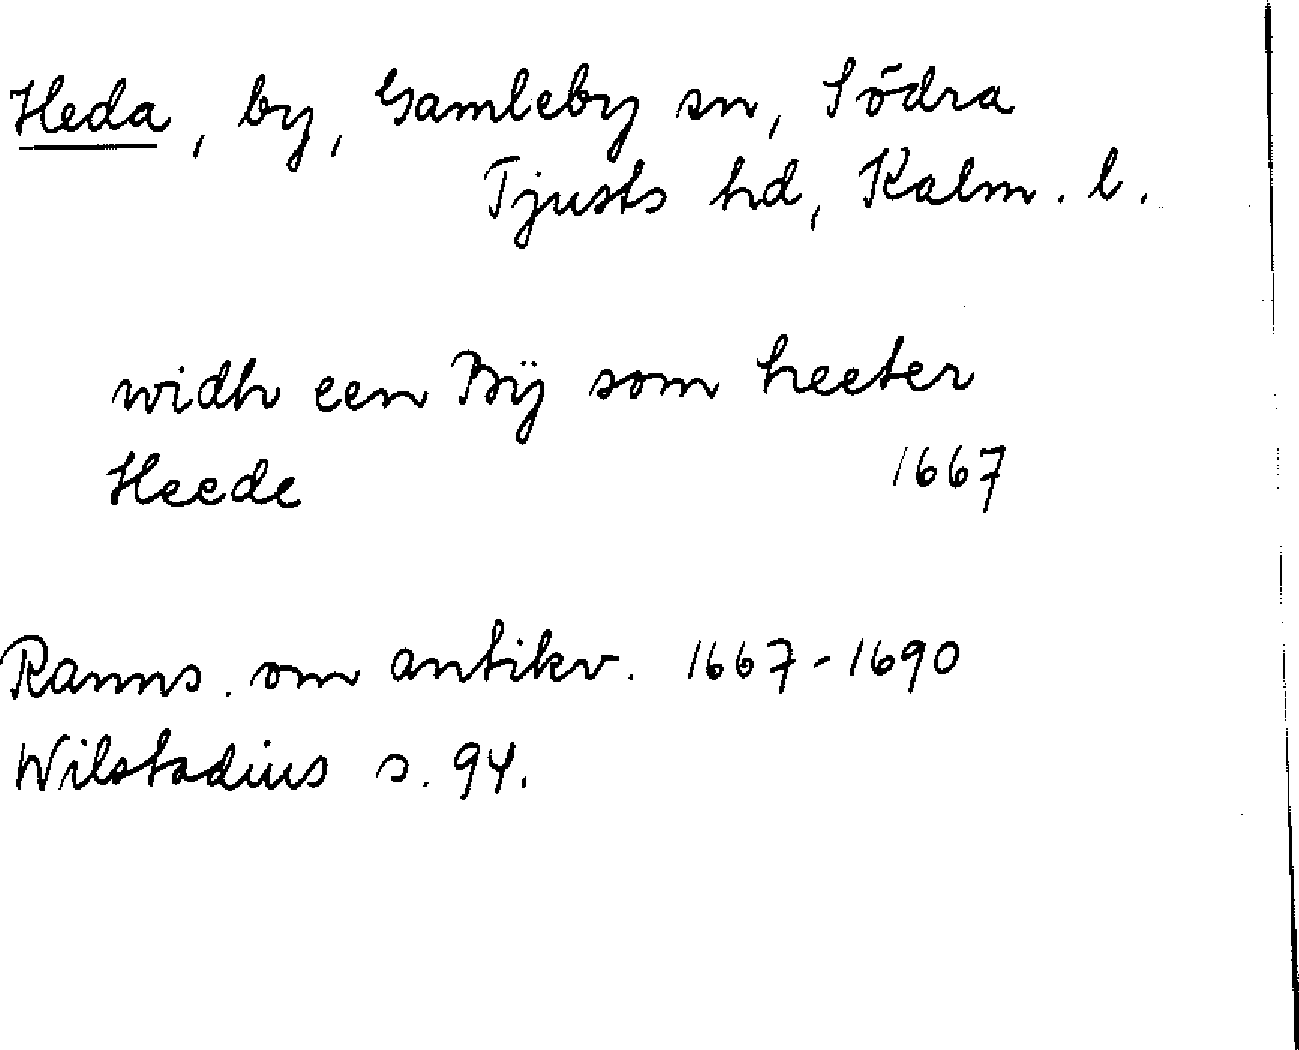 Heda, by, Gamleby sn, Södra
Tjusts hd, Kalm. l.
widh een Bÿ som heeter
Heede 1667
Ranns. om antikv. 1667-1690
Wilstadius s. 94.